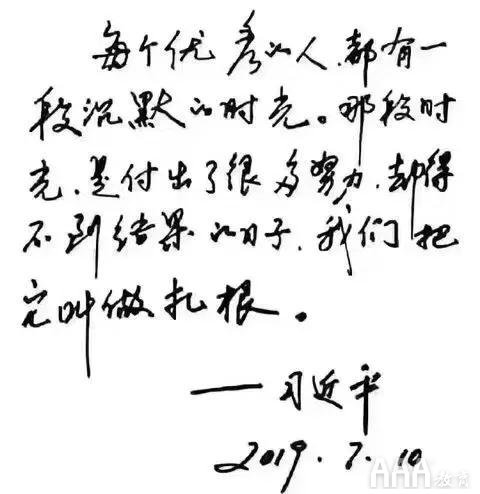 每个优秀的人,都有一
段沉默的时光。那段时
光,是付出了很多努力,却得
不到结果的日子,我们把
它叫做扎根。
——习近平
2019.7.10
AAA教育